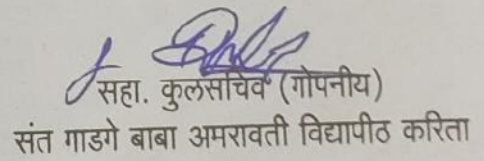 सहा. कुलसचिव (गोपनीय)
संत गाडगे बाबा अमरावती विद्यापीठ करिता